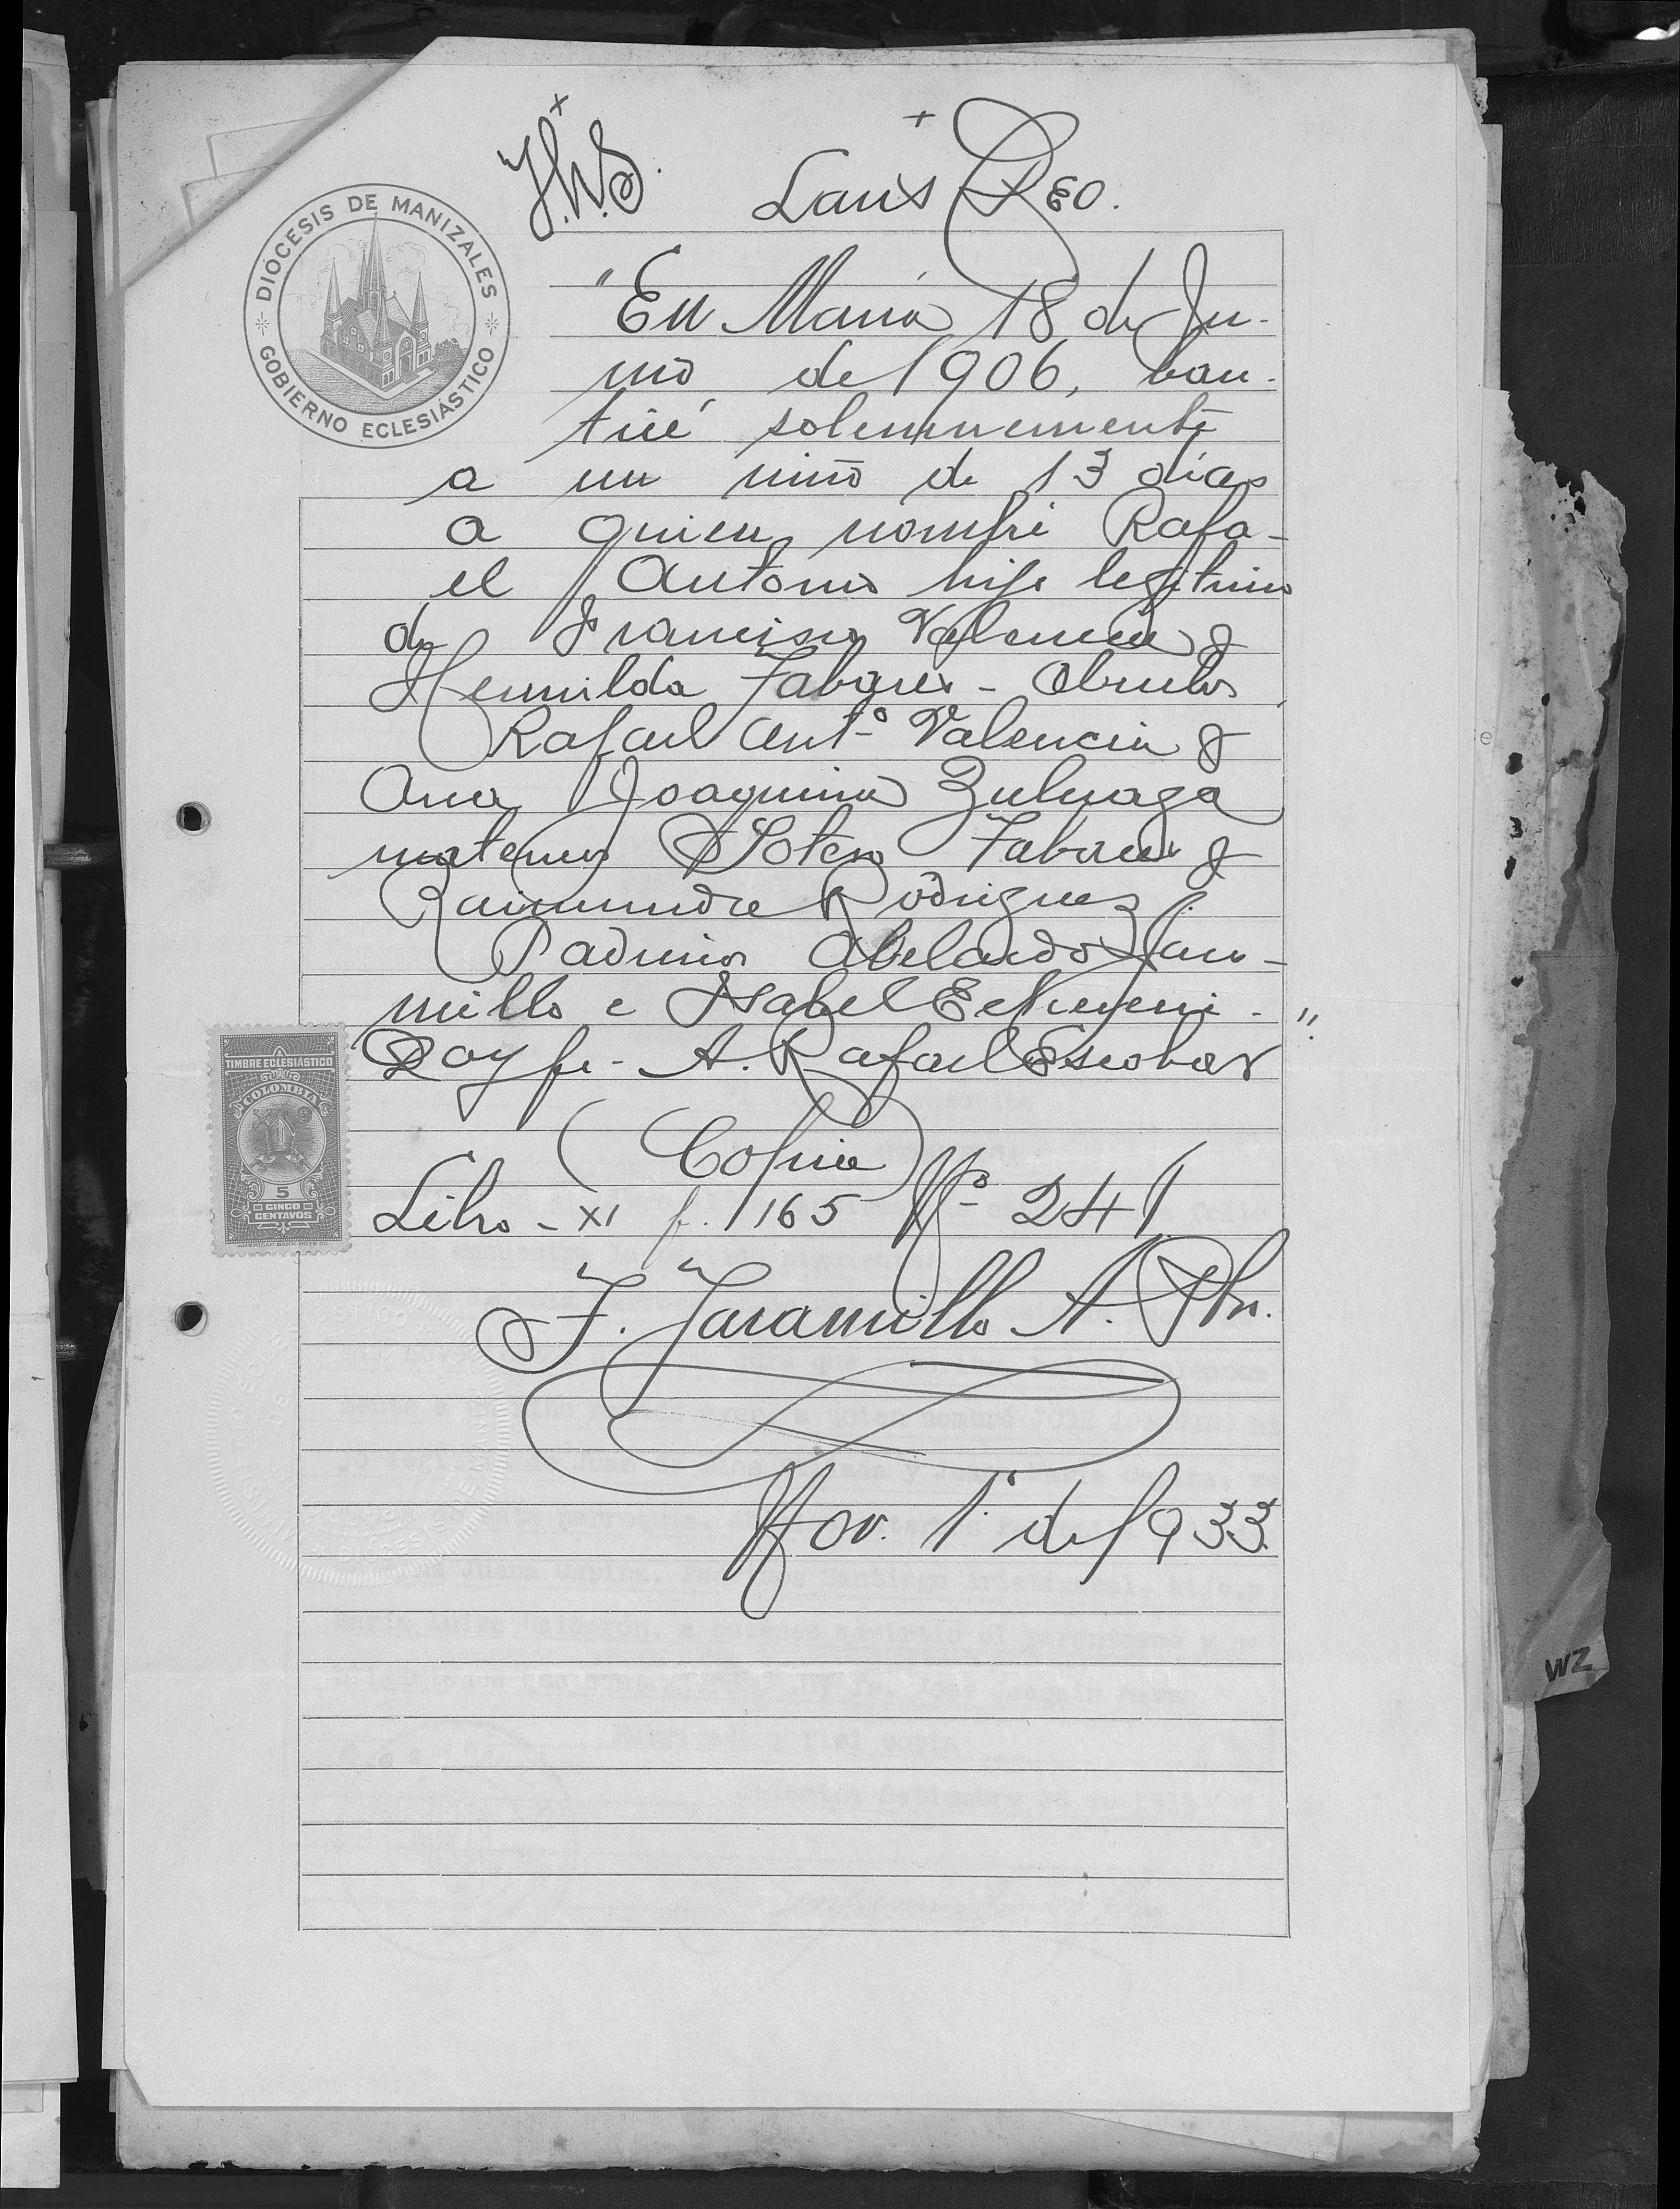 J.H.S. Laus Deo.
DIÓCESIS DE MANIZALES
GOBIERNO ECLESIÁSTICO
"En María 18 de Ju-
nio de 1906, bau-
ticé solemnemente
a un niño de 13 días
a quien nombré Rafa-
el Antonio hijo legítimo
de Francisco Valencia y
Hermilda Tabares - Abuelos
Rafael Antº Valencia y
Ana Joaquina Zuluaga
maternos Sotero Tabares y
Raimunda Rodríguez
Padrinos Abelardo Jara-
millo e Isabel Echeverri -
Doy fe - A. Rafael Escobar "
TIMBRE ECLESIÁSTICO
COLOMBIA
5
CINCO
CENTAVOS
AMERICAN BANK NOTE CO.
(Copia)
Libro - XI f. 165 Nº 241
F. Jaramillo A. Pbr.
Nov. 1º de 1933
WZ